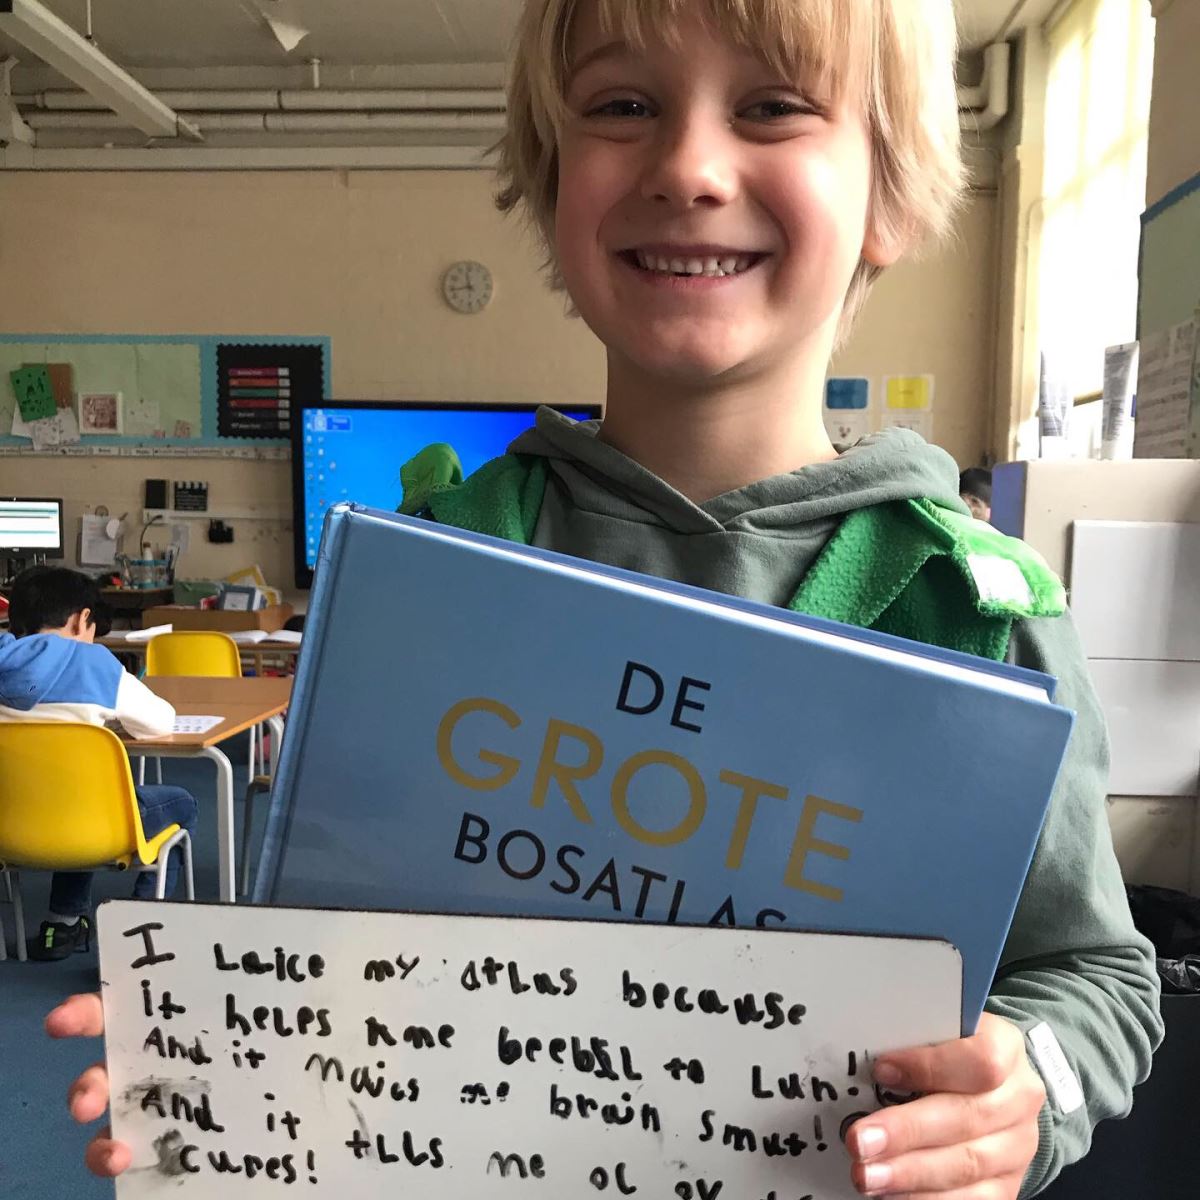 DE
GROTE
BOSATLAS
I Laice my atlas because
it helps me peepsL to Lun!
And it maics me brain smut!
And it tlls me ol ov
cures!